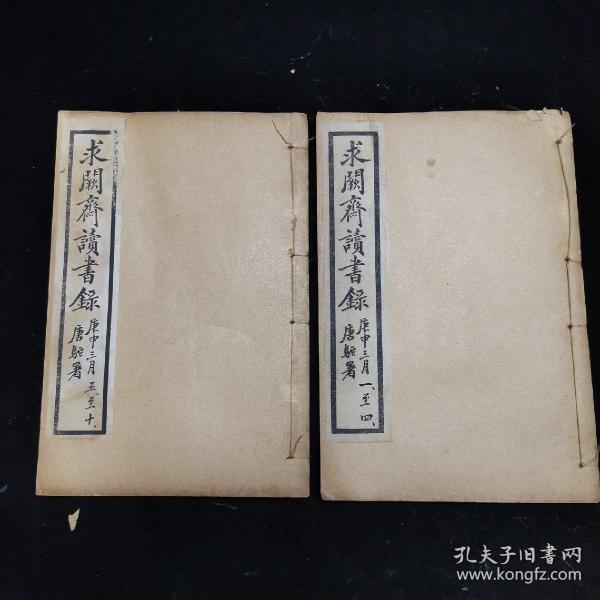 求闕齋讀書錄
庚申三月
唐駝署
一、至四、
求闕齋讀書錄
庚申三月
唐駝署
五、至十、
孔夫子旧书网
www.kongfz.com